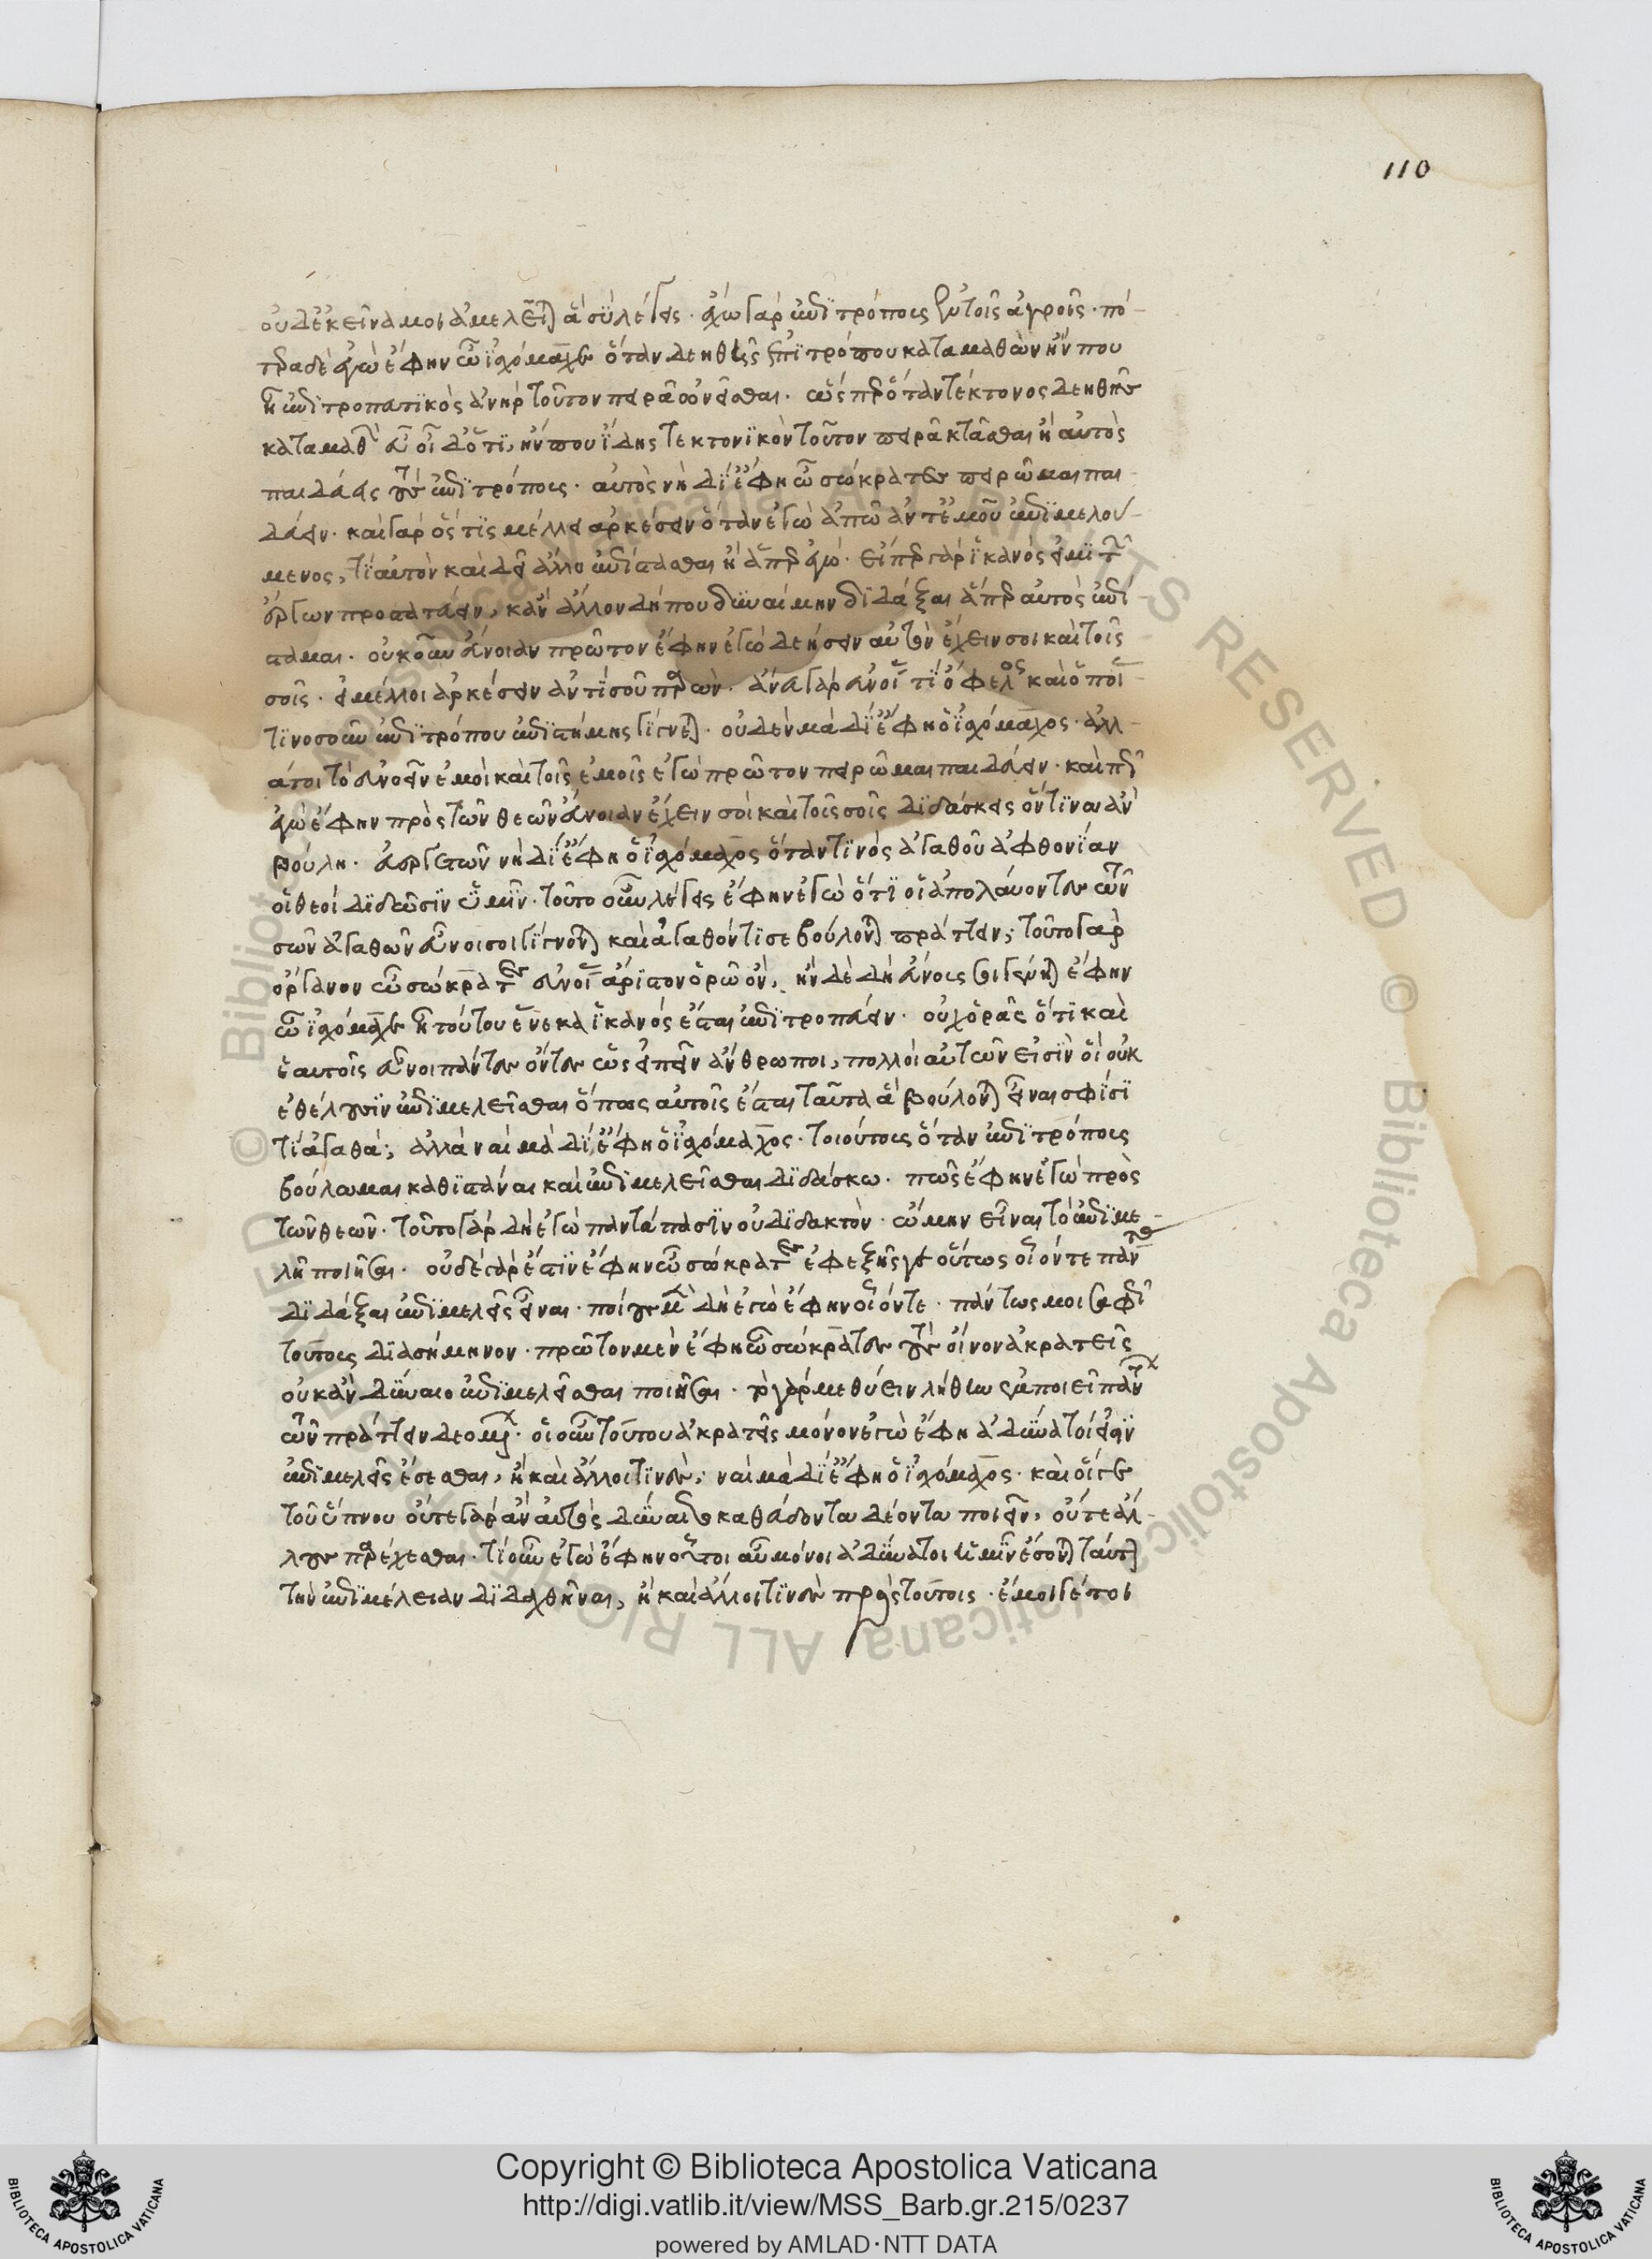 οὐδ' ἐκεῖνά μοι ἀμελεῖται ἃ σὺ λέγεις· ἔχω γὰρ ἐπιτρόπους ἐν τοῖς ἀγροῖς· πό-
τερα δὲ ἐγὼ ἔφην ὦ ἰσχόμαχε ὅταν δεηθῇς ἐπιτρόπου καταμαθὼν ἤν που
ᾖ ἐπιτροπευτικὸς ἀνὴρ τοῦτον πειρᾶ ὠνεῖσθαι· ὥσπερ ὅταν τέκτονος δεηθῇς
καταμαθὼν εὖ οἶδ' ὅτι, ἤν που ἴδῃς τεκτονικὸν τοῦτον πειρᾶ κτᾶσθαι ἢ αὐτὸς
παιδεύεις τοὺς ἐπιτρόπους· αὐτὸς νὴ δί' ἔφη ὦ σώκρατες πειρῶμαι παι-
δεύειν· καὶ γὰρ ὅστις μέλλει ἀρκέσειν ὅταν ἐγὼ ἀπῶ ἀντ' ἐμοῦ ἐπιμελού-
μενος, τί αὐτὸν καὶ δεῖ ἄλλο ἐπίστασθαι ἢ ἅπερ ἐγώ· εἴπερ γὰρ ἱκανός εἰμι τῶν
ἔργων προστατεύειν, κἂν ἄλλον δήπου δυναίμην διδάξαι ἅπερ αὐτὸς ἐπί-
σταμαι· οὐκοῦν εὔνοιαν πρῶτον ἔφην ἐγὼ δεήσειν αὐτὸν ἔχειν σοι καὶ τοῖς
σοῖς· εἰ μέλλοι ἀρκέσειν ἀντὶ σοῦ παρών· ἄνευ γὰρ εὐνοίας τί ὄφελος καὶ ὁποίας
τινοσοῦν ἐπιτρόπου ἐπιστήμης γίγνεται· οὐδὲν μὰ δί' ἔφη ὁ ἰσχόμαχος· ἀλλ-
ά τοι τὸ εὐνοεῖν ἐμοὶ καὶ τοῖς ἐμοῖς ἐγὼ πρῶτον πειρῶμαι παιδεύειν· καὶ πῶς
ἐγὼ ἔφην πρὸς τῶν θεῶν εὔνοιαν ἔχειν σοὶ καὶ τοῖς σοῖς διδάσκεις ὅντινα ἂν
βούλῃ· εὐεργετῶν νὴ δί' ἔφη ὁ ἰσχόμαχος ὅταν τινὸς ἀγαθοῦ ἀφθονίαν
οἱ θεοὶ διδῶσιν ὑμῖν· τοῦτο οὖν λέγεις ἔφην ἐγὼ ὅτι οἱ ἀπολαύοντες τῶν
σῶν ἀγαθῶν εὖνοι σοι γίγνονται καὶ ἀγαθόν τι σε βούλονται πράττειν; τοῦτο γὰρ
ὄργανον ὦ σώκρατες εὐνοίας ἄριστον ὁρῶ ὄν, ἢν δὲ δὴ εὔνους σοι γένηται ἔφην
ὦ ἰσχόμαχε ἦ τούτου ἕνεκα ἱκανὸς ἔσται ἐπιτροπεύειν· οὐχ ὁρᾷς ὅτι καὶ
ἑαυτοῖς εὖνοι πάντες ὄντες ὡς εἰπεῖν ἄνθρωποι, πολλοὶ αὐτῶν εἰσὶν οἳ οὐκ
ἐθέλουσιν ἐπιμελεῖσθαι ὅπως αὐτοῖς ἔσται ταῦτα ἃ βούλονται εἶναι σφίσι
τἀγαθά; ἀλλὰ ναὶ μὰ δί' ἔφη ὁ ἰσχόμαχος· τοιούτους ὅταν ἐπιτρόπους
βούλωμαι καθιστάναι καὶ ἐπιμελεῖσθαι διδάσκω· πῶς ἔφην ἐγὼ πρὸς
τῶν θεῶν· τοῦτο γὰρ δὴ ἐγὼ παντάπασιν οὐ διδακτὸν ᾤμην εἶναι τὸ ἐπιμε-
λῆ ποιῆσαι· οὐδὲ γάρ ἐστιν ἔφην ὦ σώκρατες ἐφεξῆς γε οὕτως οἷόν τε πάντας
διδάξαι ἐπιμελεῖς εἶναι· ποίους μὲν δὴ ἐγὼ ἔφην οἷόν τε· πάντως μοι σαφῶς
τούτους διασήμηνον· πρῶτον μὲν ἔφη ὦ σώκρατες τοὺς οἴνου ἀκρατεῖς
οὐκ ἂν δύναιο ἐπιμελεῖσθαι ποιῆσαι· τὸ γὰρ μεθύειν λήθην ἐμποιεῖ πάντων
τῶν πράττειν δεομένων· οἱ οὖν τούτου ἀκρατεῖς μόνον ἐγὼ ἔφη ἀδύνατοί εἰσιν
ἐπιμελεῖς ἔσεσθαι, ἢ καὶ ἄλλοι τινές; ναὶ μὰ δί' ἔφη ὁ ἰσχόμαχος· καὶ οἵ γε
τοῦ ὕπνου οὔτε γὰρ ἂν αὐτὸς δύναιτο καθεύδων τὰ δέοντα ποιεῖν, οὔτε ἄλ-
λους παρέχεσθαι· τί οὖν ἐγὼ ἔφην οὗτοι αὖ μόνοι ἀδύνατοι ἡμῖν ἔσονται ταύτην
τὴν ἐπιμέλειαν διδαχθῆναι, ἢ καὶ ἄλλοι τινὲς πρὸς τούτοις· ἔμοιγέ τοι
110
Copyright © Biblioteca Apostolica Vaticana
http://digi.vatlib.it/view/MSS_Barb.gr.215/0237
powered by AMLAD·NTT DATA